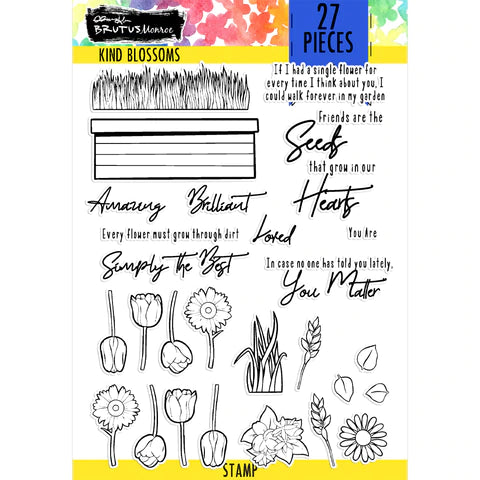 BRUTUS Monroe
27
PIECES
KIND BLOSSOMS
If I had a single flower for
every time I think about you, I
could walk forever in my garden
Friends are the
Seeds
that grow in our
Hearts
Amazing
Brilliant
Loved
You Are
Every flower must grow through dirt
Simply the Best
In case no one has told you lately,
You Matter
STAMP